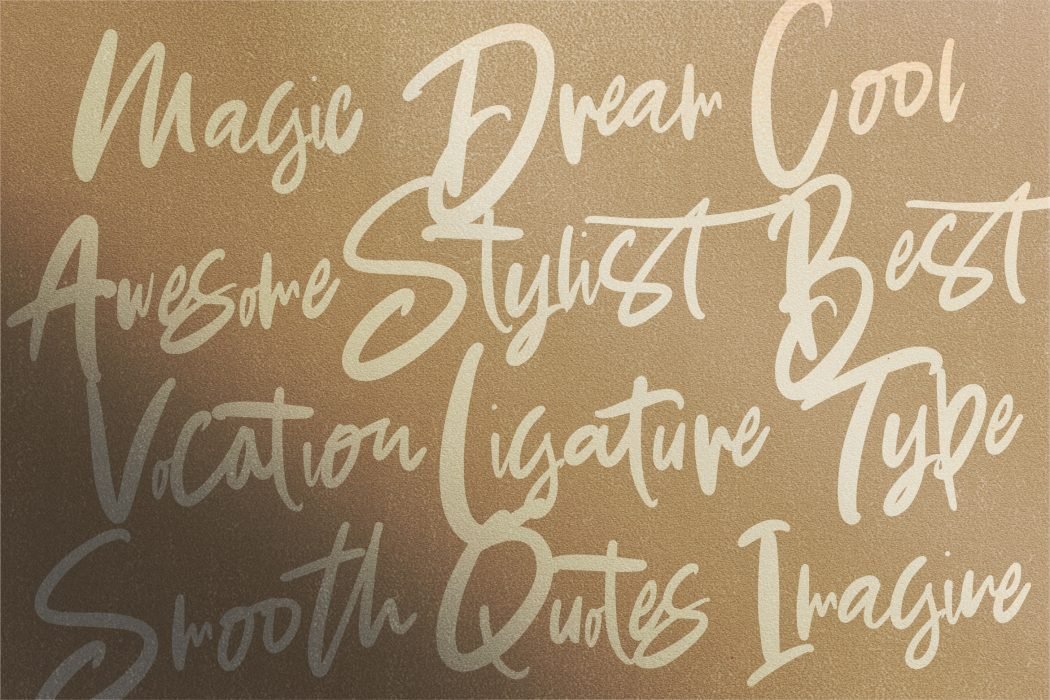 Magic Dream Cool
Awesome Stylist Best
Vocation Ligature Type
Smooth Quotes Imagine